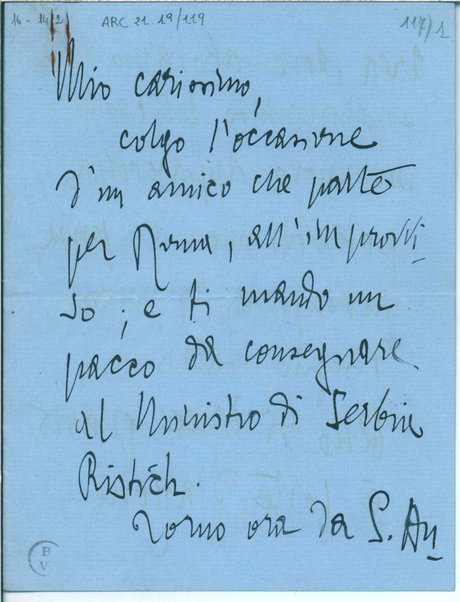 16-14/2 ARC 21 19/119 117/1
Mio carissimo,
colgo l'occasione
d'un amico che parte
per Roma, all'improvvi
so; e ti mando un
pacco da consegnare
al Ministro di Serbia
Ristich.
Torno ora da S. An
B
V